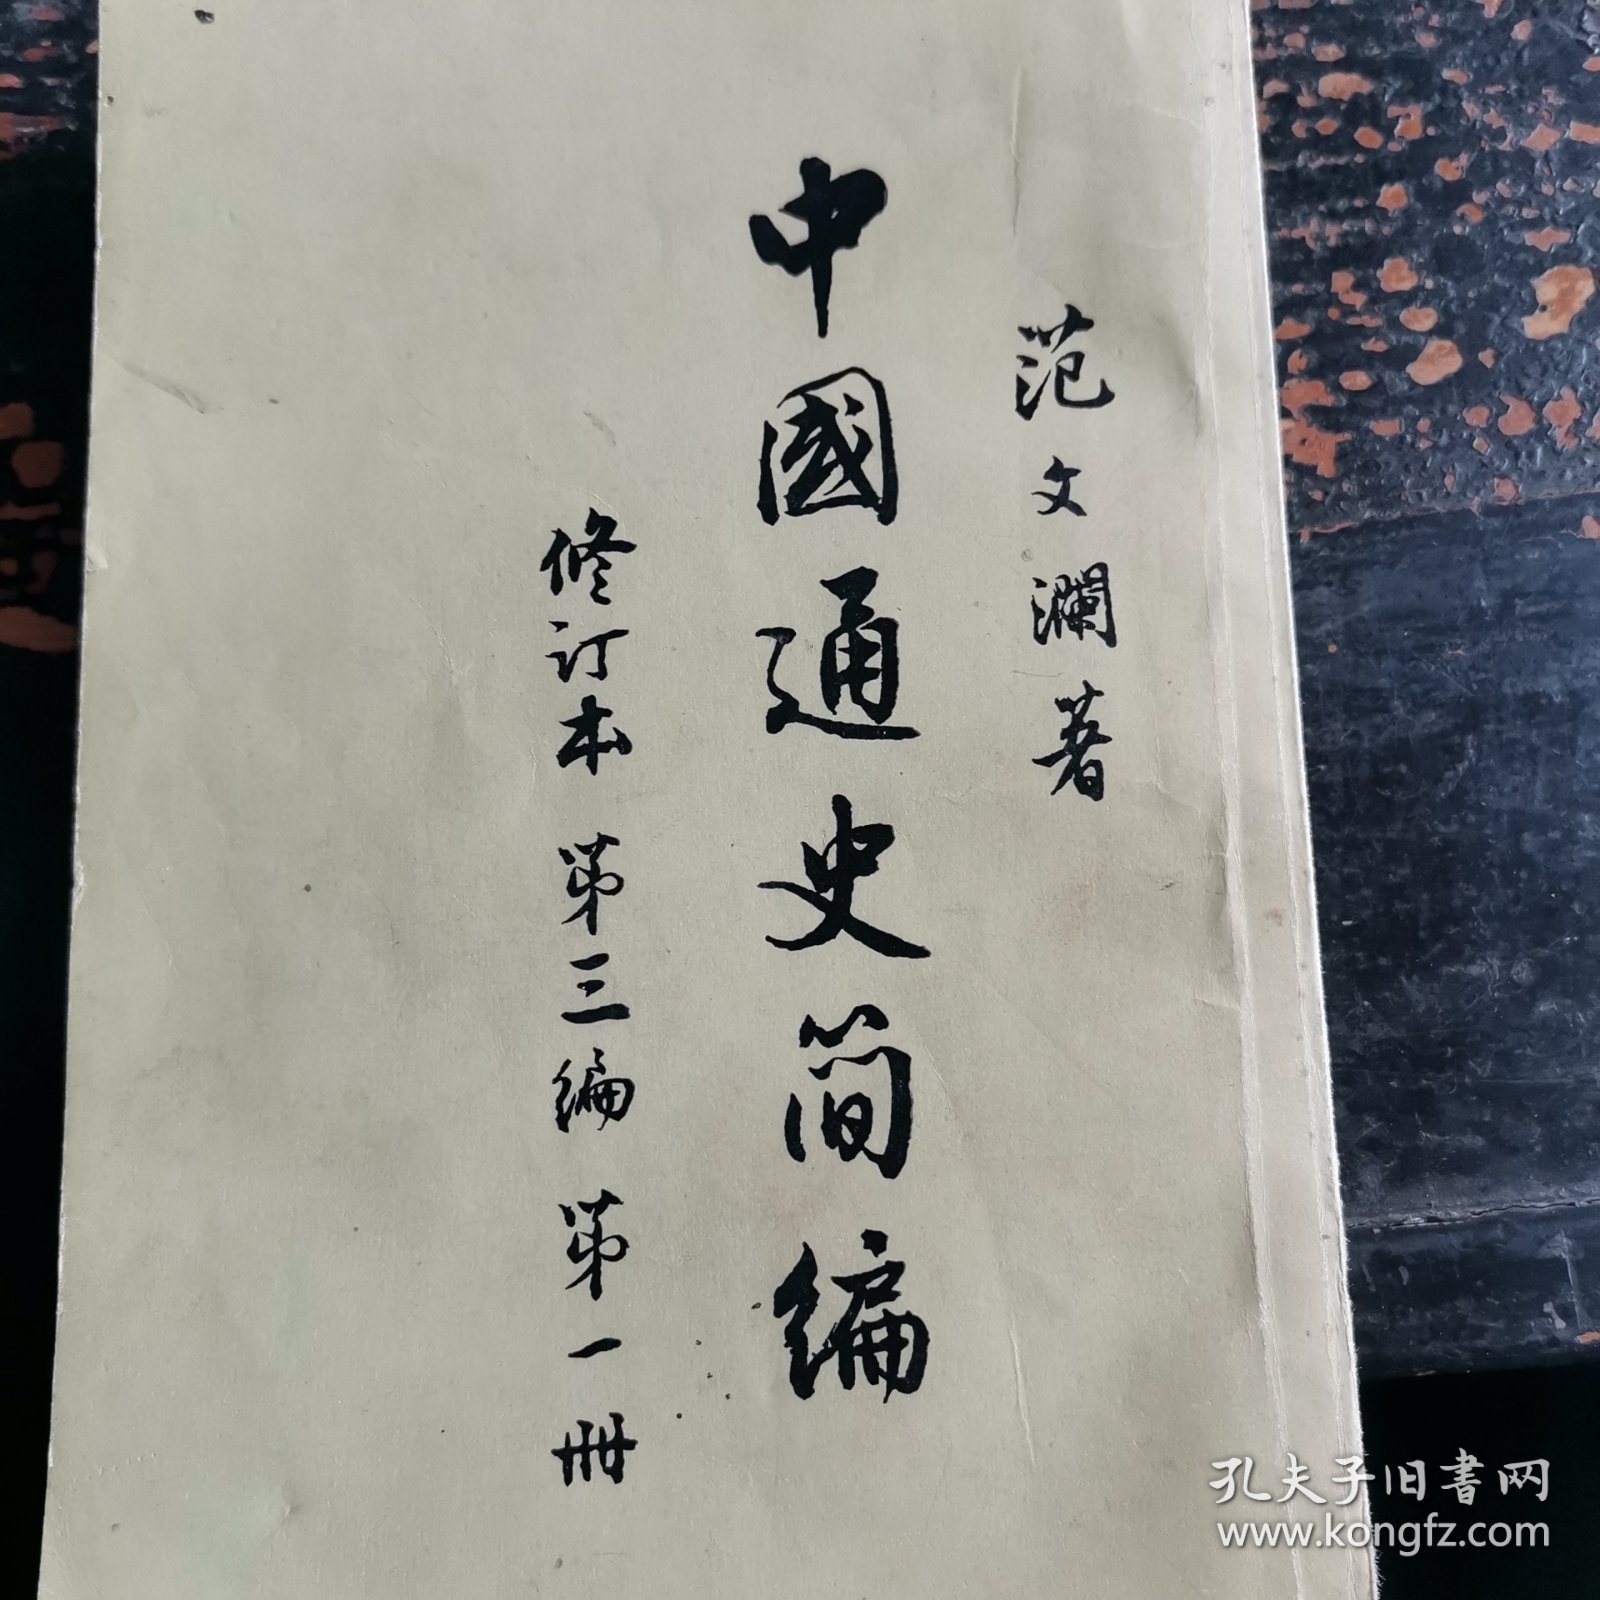 范文瀾著
中國通史简編
修订本 第三編 第一冊
孔夫子旧書网
www.kongfz.com